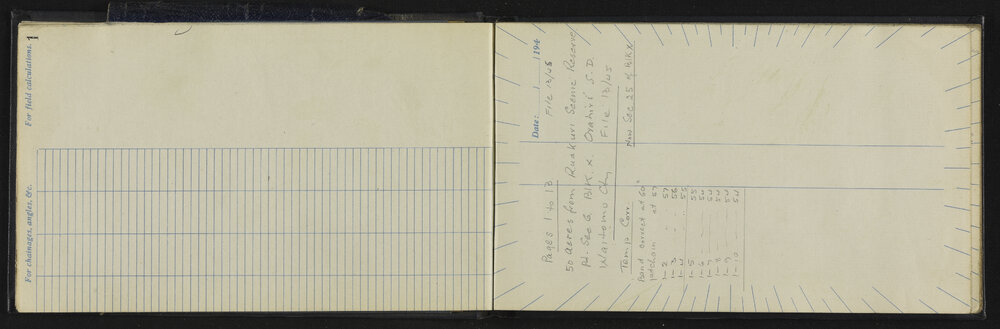 For field calculations. 1
For chainages, angles, &c.
Date: / / 194
Pages 1 to 13 File 13/45
50 acres from Ruakuri Scenic Reserve
Pt. Sec 6 Blk. X. Orahiri S.D.
Waitomo Cty File 13/45
Now Sec 25 of Blk X
Temp Corr.
Band correct at 60°
at 57
1-2 57
1-3 56
1-4 55
1-5 55
1-6 54
1-7 54
1-8 54
1-9 54
1-10 54